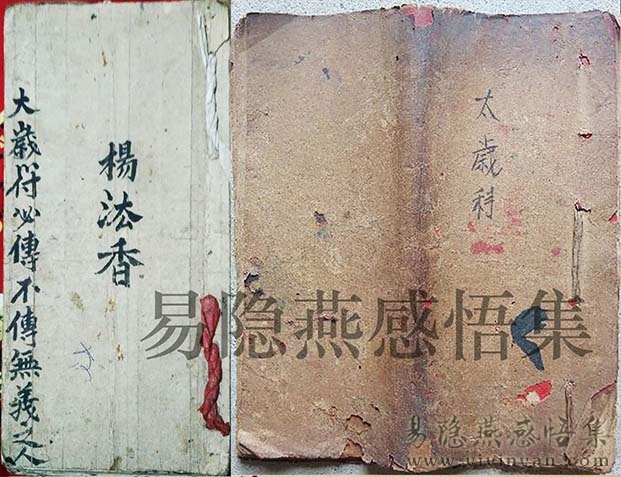 大歲符必傳不傳無義之人
楊法香
太歲科
易隐燕感悟集
易隐燕感悟集
www.yiyinyan.com